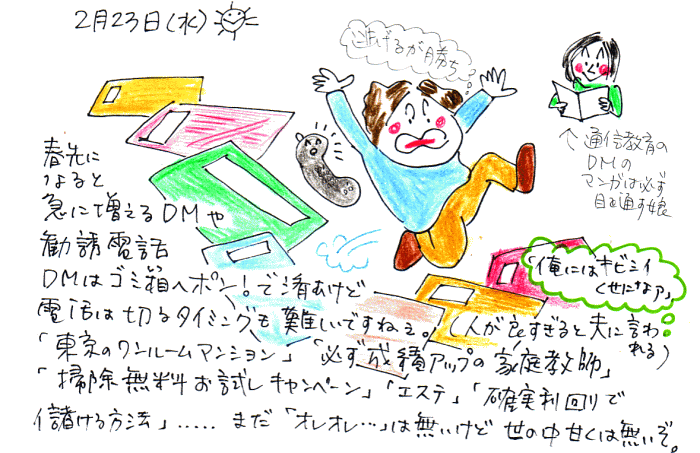 2月23日(水)
逃げるが勝ち
↑通信教育の
DMの
マンガは必ず
目を通す娘
春先に
なると
急に増えるDMや
勧誘電話
DMはゴミ箱へポン!で済むけど
電話は切るタイミングも難しいですねぇ。(人が良すぎると夫に言わ
れる)
「俺にはキビシイ
くせになァ」
「東京のワンルームマンション」「必ず成績アップの家庭教師」
「掃除無料お試しキャンペーン」「エステ」「確実利回りで
儲ける方法」‥‥‥まだ「オレオレ…」は無いけど 世の中甘くは無いぞ。